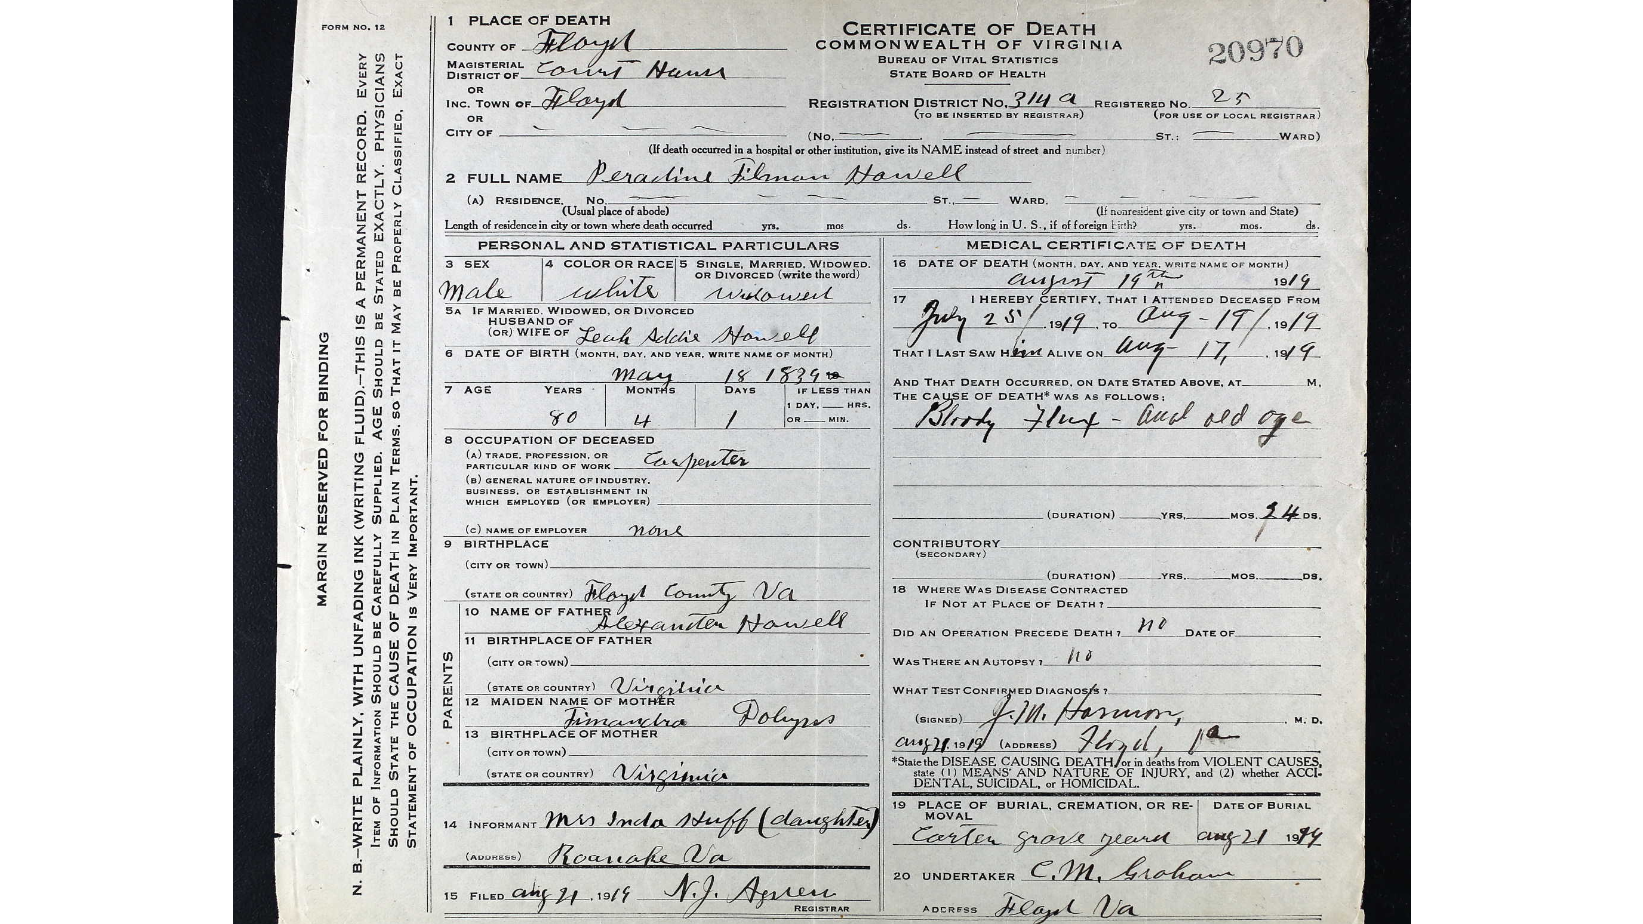 FORM NO. 12
MARGIN RESERVED FOR BINDING
N. B.—WRITE PLAINLY, WITH UNFADING INK (WRITING FLUID).—THIS IS A PERMANENT RECORD. EVERY
ITEM OF INFORMATION SHOULD BE CAREFULLY SUPPLIED. AGE SHOULD BE STATED EXACTLY. PHYSICIANS
SHOULD STATE THE CAUSE OF DEATH IN PLAIN TERMS, SO THAT IT MAY BE PROPERLY CLASSIFIED. EXACT
STATEMENT OF OCCUPATION IS VERY IMPORTANT.
1 PLACE OF DEATH
COUNTY OF Floyd
MAGISTERIAL
DISTRICT OF Court House
OR
INC. TOWN OF Floyd
OR
CITY OF
CERTIFICATE OF DEATH
COMMONWEALTH OF VIRGINIA
BUREAU OF VITAL STATISTICS
STATE BOARD OF HEALTH
20970
REGISTRATION DISTRICT NO. 314a REGISTERED NO. 25
(TO BE INSERTED BY REGISTRAR) (FOR USE OF LOCAL REGISTRAR)
(NO. ST.: WARD)
(If death occurred in a hospital or other institution, give its NAME instead of street and number)
2 FULL NAME Peradine Tilman Howell
(A) RESIDENCE. NO. ST., WARD.
(Usual place of abode) (If nonresident give city or town and State)
Length of residence in city or town where death occurred yrs. mos ds. How long in U. S., if of foreign birth? yrs. mos. ds.
PERSONAL AND STATISTICAL PARTICULARS
3 SEX 4 COLOR OR RACE 5 SINGLE, MARRIED, WIDOWED,
OR DIVORCED (write the word)
Male white widowed
5A IF MARRIED, WIDOWED, OR DIVORCED
HUSBAND OF
(OR) WIFE OF Leah Addie Howell
6 DATE OF BIRTH (MONTH, DAY, AND YEAR, WRITE NAME OF MONTH)
May 18 1839
7 AGE YEARS MONTHS DAYS IF LESS THAN
1 DAY, HRS.
80 4 1 OR MIN.
8 OCCUPATION OF DECEASED
(A) TRADE, PROFESSION, OR
PARTICULAR KIND OF WORK Carpenter
(B) GENERAL NATURE OF INDUSTRY,
BUSINESS, OR ESTABLISHMENT IN
WHICH EMPLOYED (OR EMPLOYER)
(C) NAME OF EMPLOYER none
9 BIRTHPLACE
(CITY OR TOWN)
(STATE OR COUNTRY) Floyd County Va
PARENTS
10 NAME OF FATHER
Alexander Howell
11 BIRTHPLACE OF FATHER
(CITY OR TOWN)
(STATE OR COUNTRY) Virginia
12 MAIDEN NAME OF MOTHER
Timandra
13 BIRTHPLACE OF MOTHER
(CITY OR TOWN)
(STATE OR COUNTRY) Virginia
14 INFORMANT Mrs Inda Huff (daughter)
(ADDRESS) Roanoke Va
15 FILED aug 21, 1919 N.J. Agnew
REGISTRAR
MEDICAL CERTIFICATE OF DEATH
16 DATE OF DEATH (MONTH, DAY, AND YEAR, WRITE NAME OF MONTH)
august 19th 1919
17 I HEREBY CERTIFY, THAT I ATTENDED DECEASED FROM
July 25/, 1919, TO Aug-19/, 1919
THAT I LAST SAW Him ALIVE ON Aug- 17, , 1919
AND THAT DEATH OCCURRED, ON DATE STATED ABOVE, AT M.
THE CAUSE OF DEATH* WAS AS FOLLOWS:
Bloody Flux - and old age
(DURATION) YRS. MOS. 24 DS.
CONTRIBUTORY
(SECONDARY)
(DURATION) YRS. MOS. DS.
18 WHERE WAS DISEASE CONTRACTED
IF NOT AT PLACE OF DEATH?
DID AN OPERATION PRECEDE DEATH? no DATE OF
WAS THERE AN AUTOPSY? no
WHAT TEST CONFIRMED DIAGNOSIS?
(SIGNED) J.M. Harmon, , M. D.
aug 21, 1919 (ADDRESS) Floyd, Va
*State the DISEASE CAUSING DEATH, or in deaths from VIOLENT CAUSES,
state (1) MEANS AND NATURE OF INJURY, and (2) whether ACCI-
DENTAL, SUICIDAL, or HOMICIDAL.
19 PLACE OF BURIAL, CREMATION, OR RE- DATE OF BURIAL
MOVAL
Carter grave yeard aug 21 1919
20 UNDERTAKER C.M. Graham
ADDRESS Floyd Va